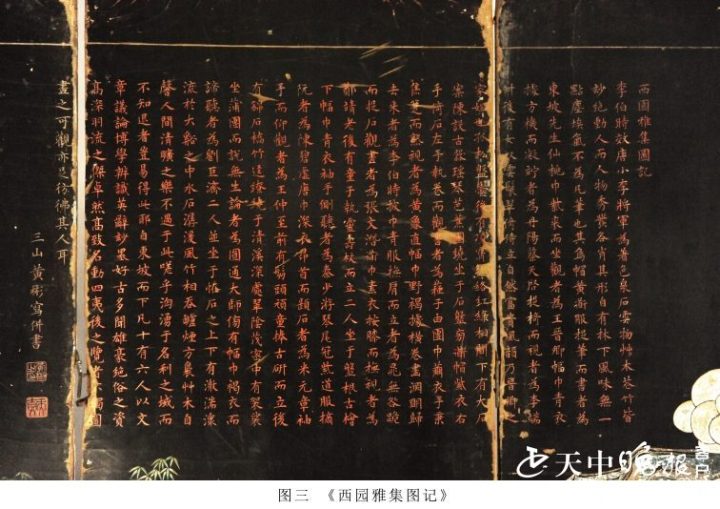 西園雅集圖記
李伯時效唐小李將軍為著色泉石雲物艸木花竹皆
妙絕動人而人物秀發各肖其形自有林下風味無一
點塵埃氣不為凡筆也其烏帽黃衜服捉筆而書者為
東坡先生仙桃巾紫裘而坐觀者為王晉卿幅巾青衣
據方機而凝竚者為丹陽蔡天啟捉椅而視者為李端
叔後有女奴雲鬟翠飾侍立自然富貴風韻乃晉卿之
家姬也孤松盤鬱後有凌霄纏絡紅綠相間下有大石
案陳設古器瑤琴芭蕉圍繞坐于石盤旁道帽紫衣右
手倚石左手執卷而觀書者為蘓子由團巾繭衣手秉
蕉箑而熟視者為黃魯直幅巾野褐據橫卷畫淵明歸
去來者為李伯時披巾青服撫肩而立者為晁無咎跪
而捉石觀畫者為張文潛道巾素衣按膝而俯視者為
鄭靖老後有童子執靈壽杖而立二人坐于盤根古檜
下幅巾青衣袖手側聽者為秦少游琴尾冠紫道服摘
阮者為陳碧虛唐巾深衣昂首而題石者為米元章袖
手而仰觀者為王仲至前有髯頭頑童捧古硯而立後
有錦石橋竹逕繚繞于清溪深處翠陰茂密中有袈裟
坐蒲團而說無生論者為圓通大師傍有幅巾褐衣而
諦聽者為劉巨濟二人並坐于怪石之上下有激湍潨
流於大谿之中水石潺湲風竹相吞爐煙方裊艸木自
馨人間清曠之樂不過于此嗟乎洶湧于名利之域而
不知退者豈易得此耶自東坡而下凡十有六人以文
章議論博學辨識英辭妙墨好古多聞雄豪絕俗之資
高深羽流之傑卓然高致名動四夷後之覽者不獨圖
畫之可觀亦足彷彿其人耳
三山黃彬寫併書
天中晚报
图三 《西园雅集图记》